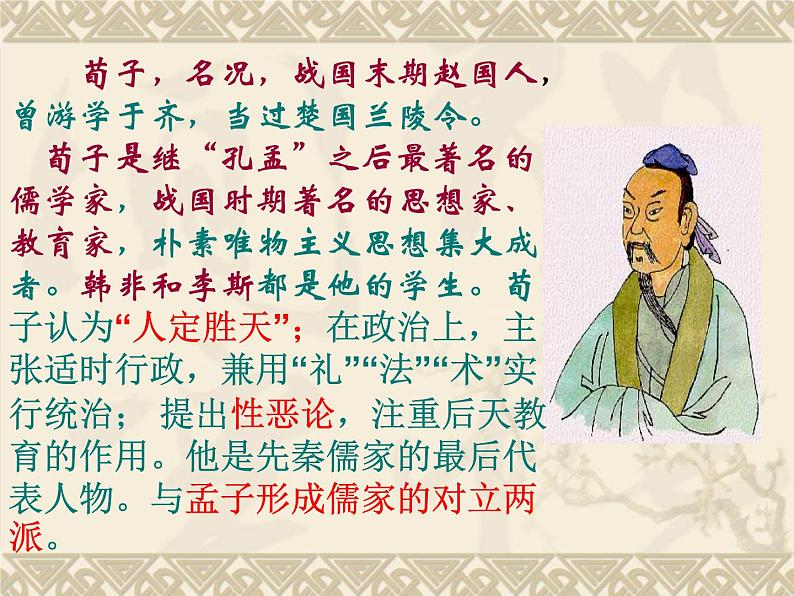 荀子，名况，战国末期赵国人，
曾游学于齐，当过楚国兰陵令。
荀子是继“孔孟”之后最著名的
儒学家，战国时期著名的思想家、
教育家，朴素唯物主义思想集大成
者。韩非和李斯都是他的学生。荀
子认为“人定胜天”；在政治上，主
张适时行政，兼用“礼”“法”“术”实
行统治； 提出性恶论，注重后天教
育的作用。他是先秦儒家的最后代
表人物。与孟子形成儒家的对立两
派。